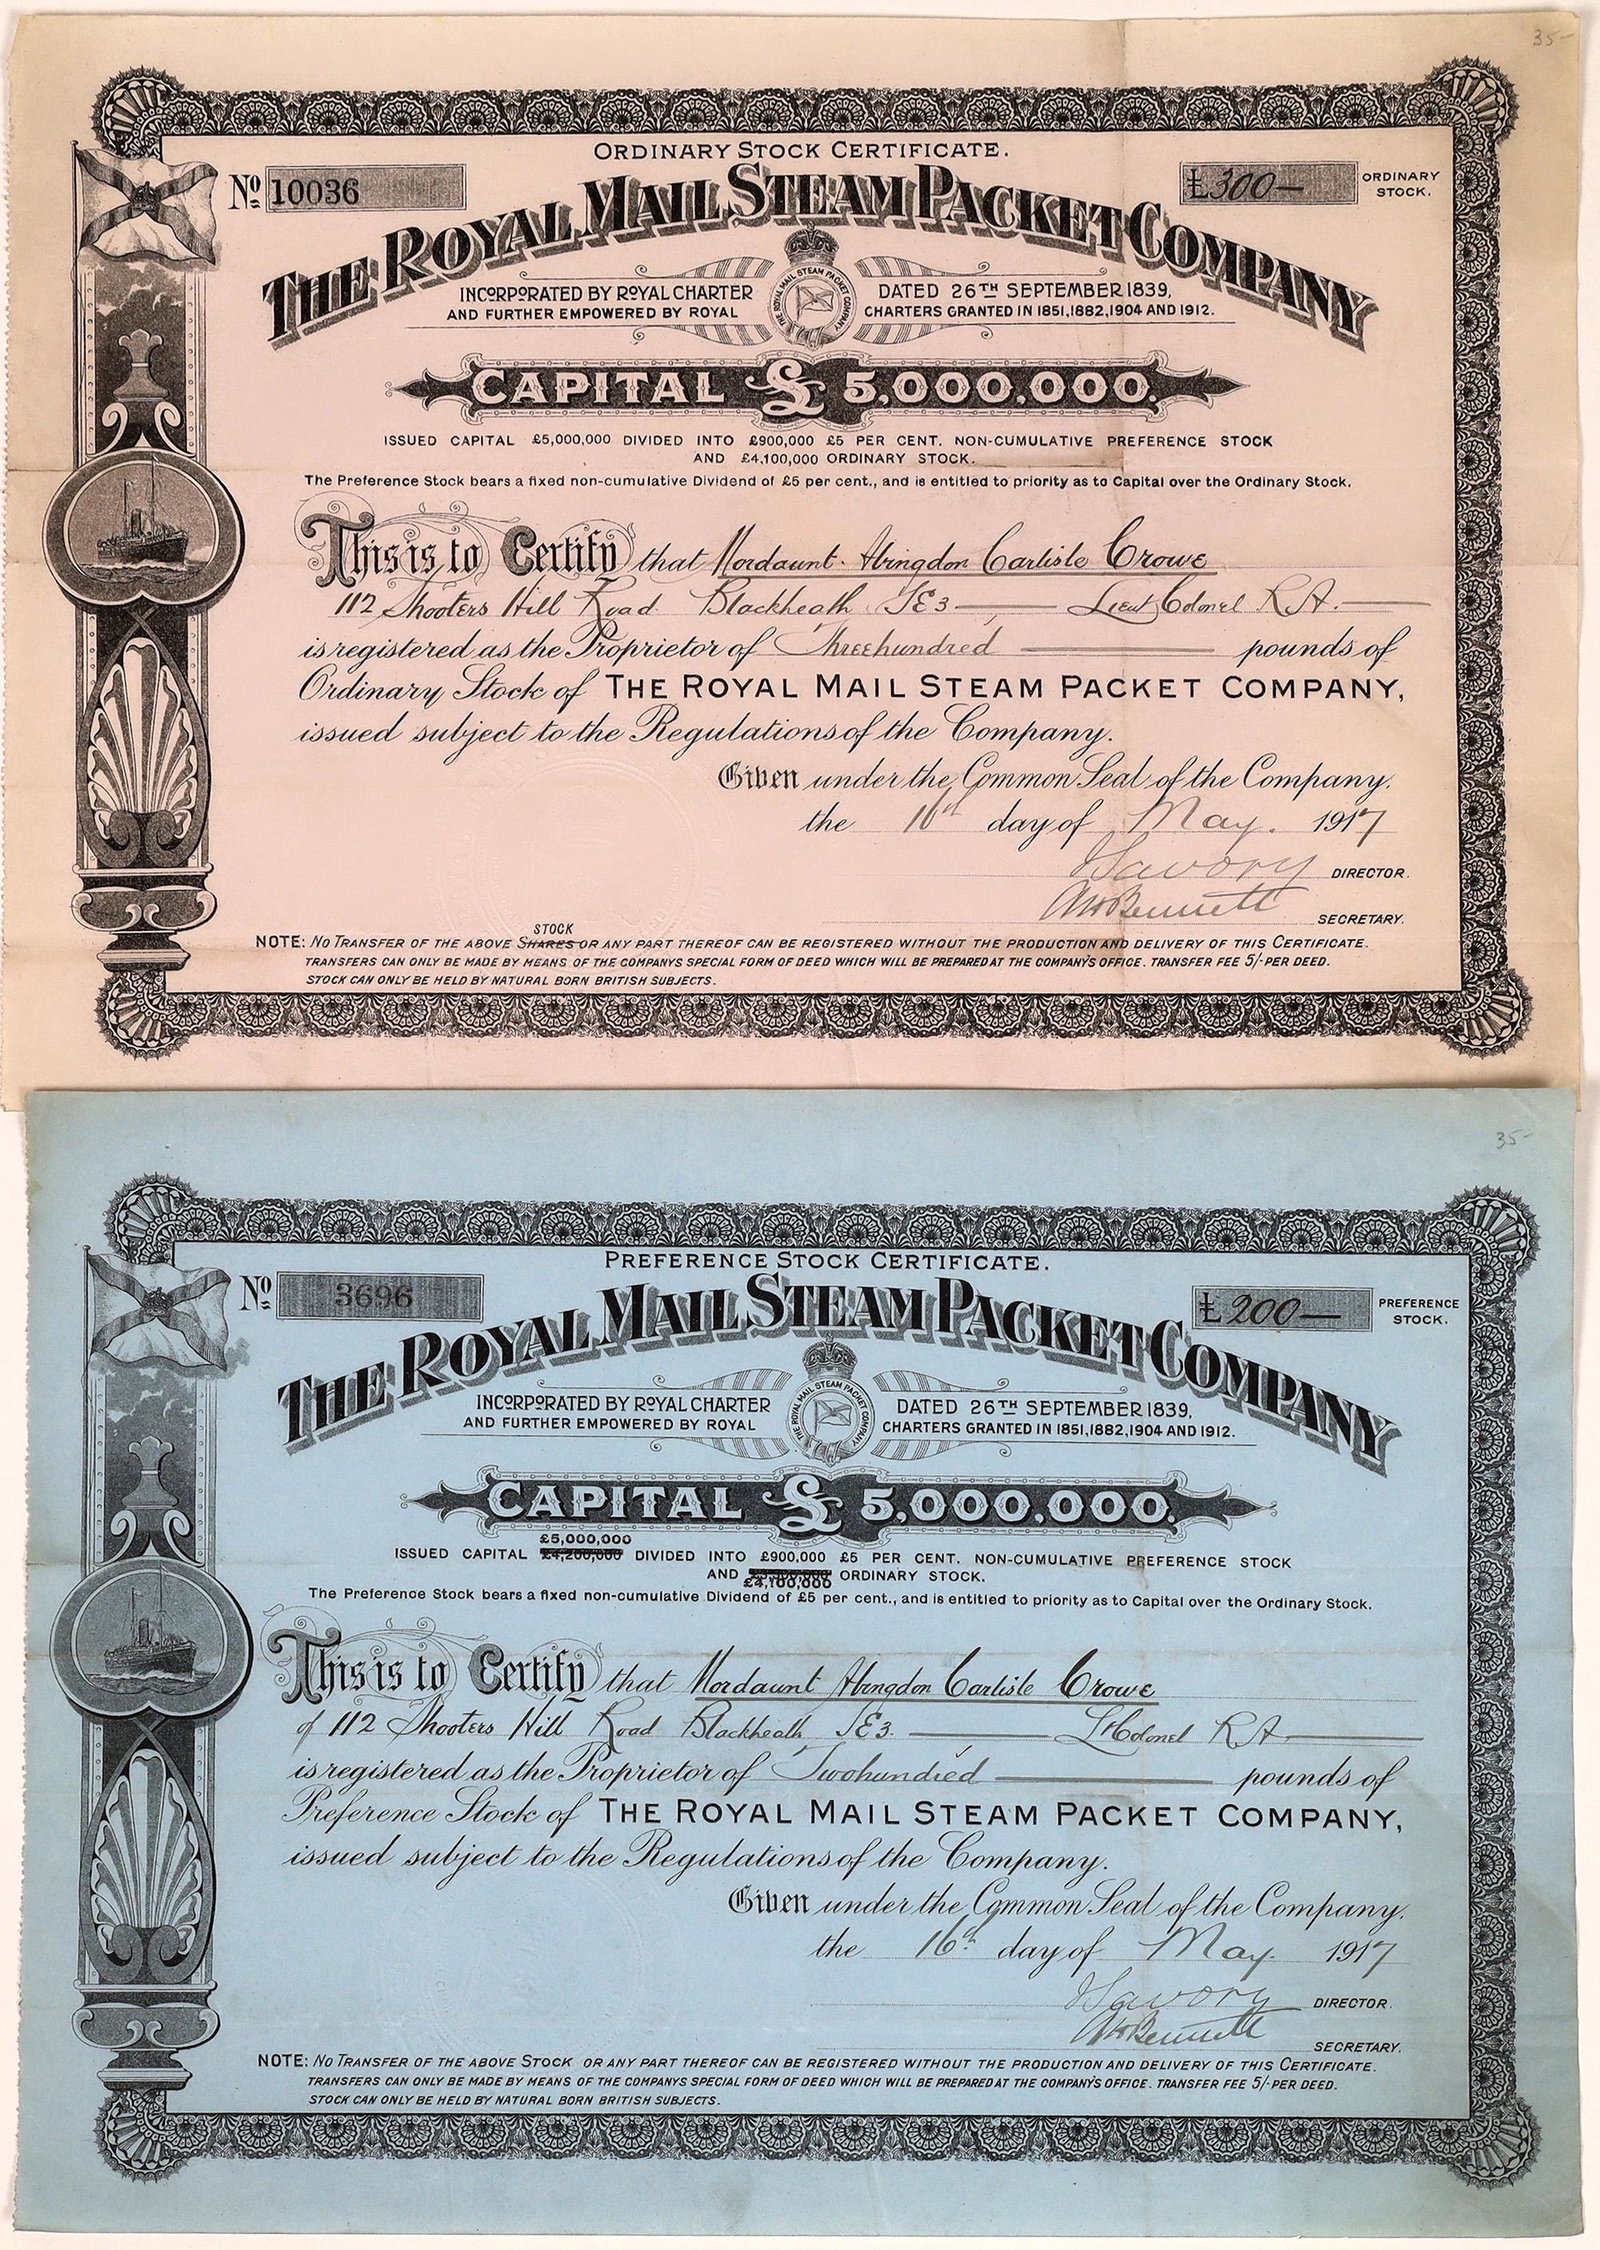 35-
ORDINARY STOCK CERTIFICATE.
No 10036
£300— ORDINARY STOCK.
THE ROYAL MAIL STEAM PACKET COMPANY
INCORPORATED BY ROYAL CHARTER DATED 26TH SEPTEMBER 1839,
AND FURTHER EMPOWERED BY ROYAL CHARTERS GRANTED IN 1851,1882,1904 AND 1912.
THE ROYAL MAIL STEAM PACKET COMPANY
CAPITAL £5,000,000.
ISSUED CAPITAL £5,000,000 DIVIDED INTO £900,000 £5 PER CENT. NON-CUMULATIVE PREFERENCE STOCK
AND £4,100,000 ORDINARY STOCK.
The Preference Stock bears a fixed non-cumulative Dividend of £5 per cent., and is entitled to priority as to Capital over the Ordinary Stock.
This is to Certify that Mordaunt Abingdon Carlisle Crowe
112 Shooters Hill Road Blackheath SE3 — Lieut Colonel R.A. —
is registered as the Proprietor of Threehundred — pounds of
Ordinary Stock of THE ROYAL MAIL STEAM PACKET COMPANY,
issued subject to the Regulations of the Company.
Given under the Common Seal of the Company.
the 16th day of May. 1917
Savory DIRECTOR.
Bennett SECRETARY.
STOCK
NOTE: NO TRANSFER OF THE ABOVE SHARES OR ANY PART THEREOF CAN BE REGISTERED WITHOUT THE PRODUCTION AND DELIVERY OF THIS CERTIFICATE.
TRANSFERS CAN ONLY BE MADE BY MEANS OF THE COMPANYS SPECIAL FORM OF DEED WHICH WILL BE PREPARED AT THE COMPANY'S OFFICE. TRANSFER FEE 5/- PER DEED.
STOCK CAN ONLY BE HELD BY NATURAL BORN BRITISH SUBJECTS.
35-
PREFERENCE STOCK CERTIFICATE.
No 3696
£200— PREFERENCE STOCK.
THE ROYAL MAIL STEAM PACKET COMPANY
INCORPORATED BY ROYAL CHARTER DATED 26TH SEPTEMBER 1839,
AND FURTHER EMPOWERED BY ROYAL CHARTERS GRANTED IN 1851,1882,1904 AND 1912.
THE ROYAL MAIL STEAM PACKET COMPANY
CAPITAL £5,000,000.
£5,000,000
ISSUED CAPITAL £4,200,000 DIVIDED INTO £900,000 £5 PER CENT. NON-CUMULATIVE PREFERENCE STOCK
AND ORDINARY STOCK.
£4,100,000
The Preference Stock bears a fixed non-cumulative Dividend of £5 per cent., and is entitled to priority as to Capital over the Ordinary Stock.
This is to Certify that Mordaunt Abingdon Carlisle Crowe
of 112 Shooters Hill Road Blackheath SE3. — Lt Colonel R.A. —
is registered as the Proprietor of Twohundred — pounds of
Preference Stock of THE ROYAL MAIL STEAM PACKET COMPANY,
issued subject to the Regulations of the Company.
Given under the Common Seal of the Company.
the 16th day of May. 1917
Savory DIRECTOR.
Bennett SECRETARY.
NOTE: NO TRANSFER OF THE ABOVE STOCK OR ANY PART THEREOF CAN BE REGISTERED WITHOUT THE PRODUCTION AND DELIVERY OF THIS CERTIFICATE.
TRANSFERS CAN ONLY BE MADE BY MEANS OF THE COMPANYS SPECIAL FORM OF DEED WHICH WILL BE PREPARED AT THE COMPANY'S OFFICE. TRANSFER FEE 5/- PER DEED.
STOCK CAN ONLY BE HELD BY NATURAL BORN BRITISH SUBJECTS.